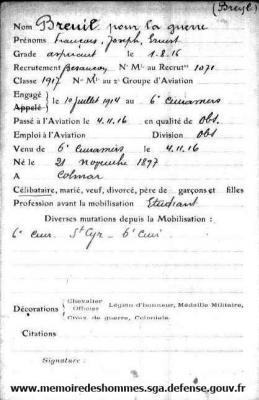 (Breyl)
Nom Breuil pour la guerre
Prénoms François, Joseph, Ernest
Grade aspirant le 1.8.16
Recrutement Besançon N° Mle au Recrut° 1071
Classe 1917 N° Mle au 2e Groupe d'Aviation
Engagé
Appelé le 10 juillet 1914 au 6e Cuirassiers
Passé à l'Aviation le 4.11.16 en qualité de Obs.
Emploi à l'Aviation Division Obs
Venu de 6e Cuirassiers le 4.11.16
Né le 21 novembre 1897
A Colmar
Célibataire, marié, veuf, divorcé, père de garçons et filles
Profession avant la mobilisation Etudiant
Diverses mutations depuis la Mobilisation :
6e Cuir. St Cyr - 6e Cuir
Chevalier
Décorations Officier Légion d'honneur, Médaille Militaire,
Croix de guerre, Coloniale.
Citations
Signature :
www.memoiredeshommes.sga.defense.gouv.fr